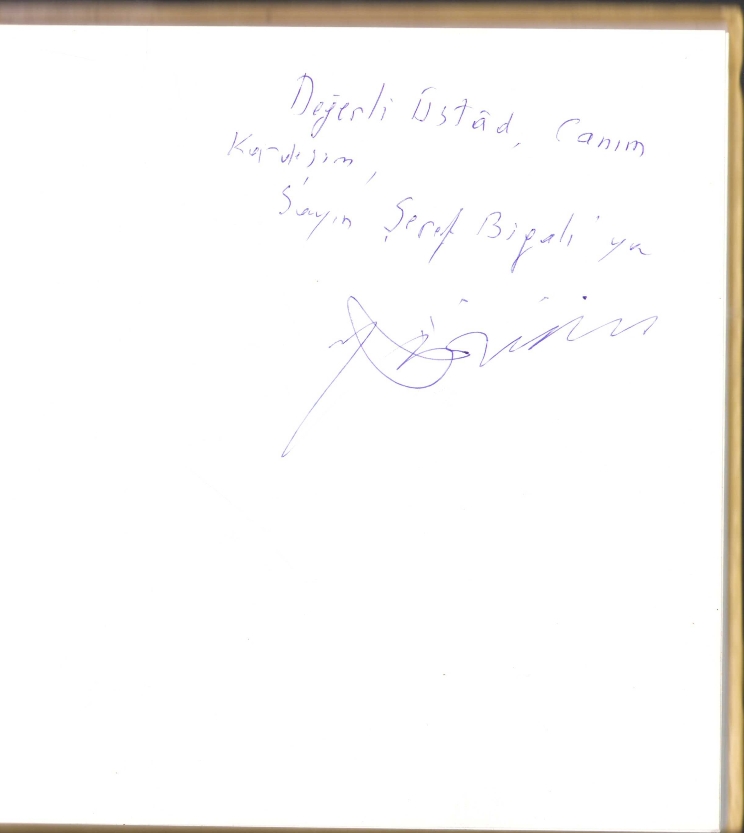 Değerli Üstâd, Canım
Kardeşim,
Sayın Şeref Bigalı'ya